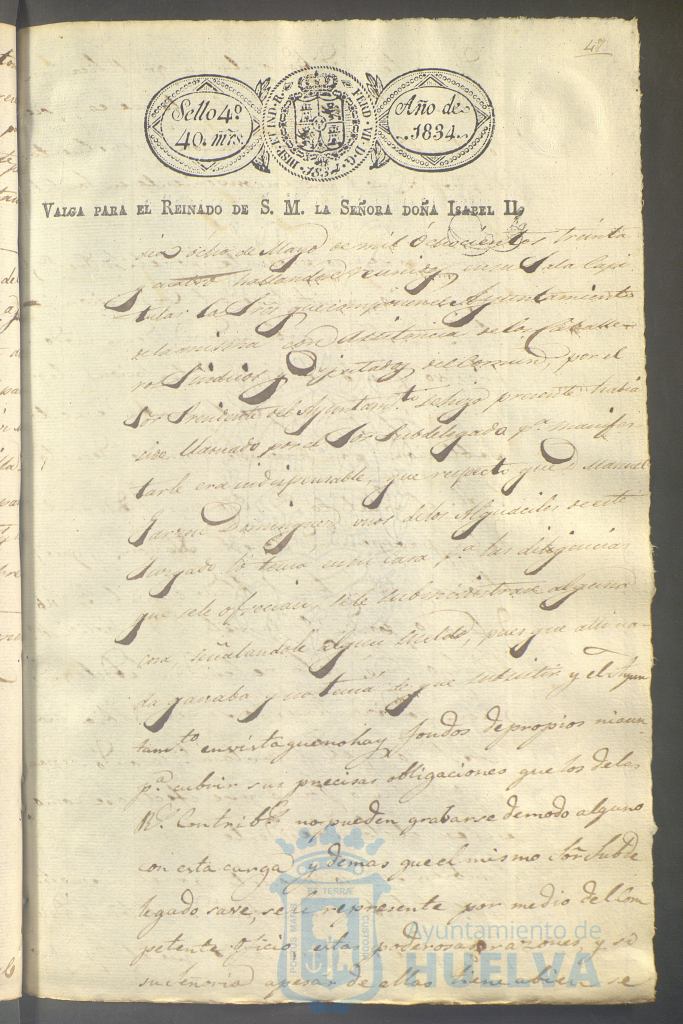 48
Sello 4º
40. mrs.
HISP. ET IND. R. FERD. VII D. G. 1834
Año de
1834.
VALGA PARA EL REINADO DE S. M. LA SEÑORA DOÑA ISABEL II.
dia ocho de Mayo de mil Ochocientos treinta
y cuatro hallandose reunidos en su Sala Capi
tular los Sres que componen el Ayuntamiento
de la misma con Assistencia de los Caballe
ros Sindicos y Diputados del Comun, por el
Sor Presidente del Ayuntamto. se hizo presente habia
sido llamado por el Sor Subdelegado pa. manifes
tarle era indispensable, que respecto que D. Manuel
Garcia Dominguez unos de los Alguaciles de este
Juzgado lo tenia en su casa pa. las diligencias
que se le ofrecian, se le subministrase alguna
cosa, señalandole algun sueldo, pues que alli na
da ganaba y no tenia de que subsistir y el Ayun
tamto. en vista que no hay fondos de propios ni aun
pa. cubrir sus precisas obligaciones que los de las
Rs. Contribs. no pueden grabarse de modo alguno
con esta carga y demas que el mismo Sor Subde
legado save, se le represente por medio del Com
petente oficio estas poderosas razones, y si
su Señoria apesar de ellas tiene a bien se
PORTUS MARIS ET TERRAE CUSTODIA
Ayuntamiento de
HUELVA